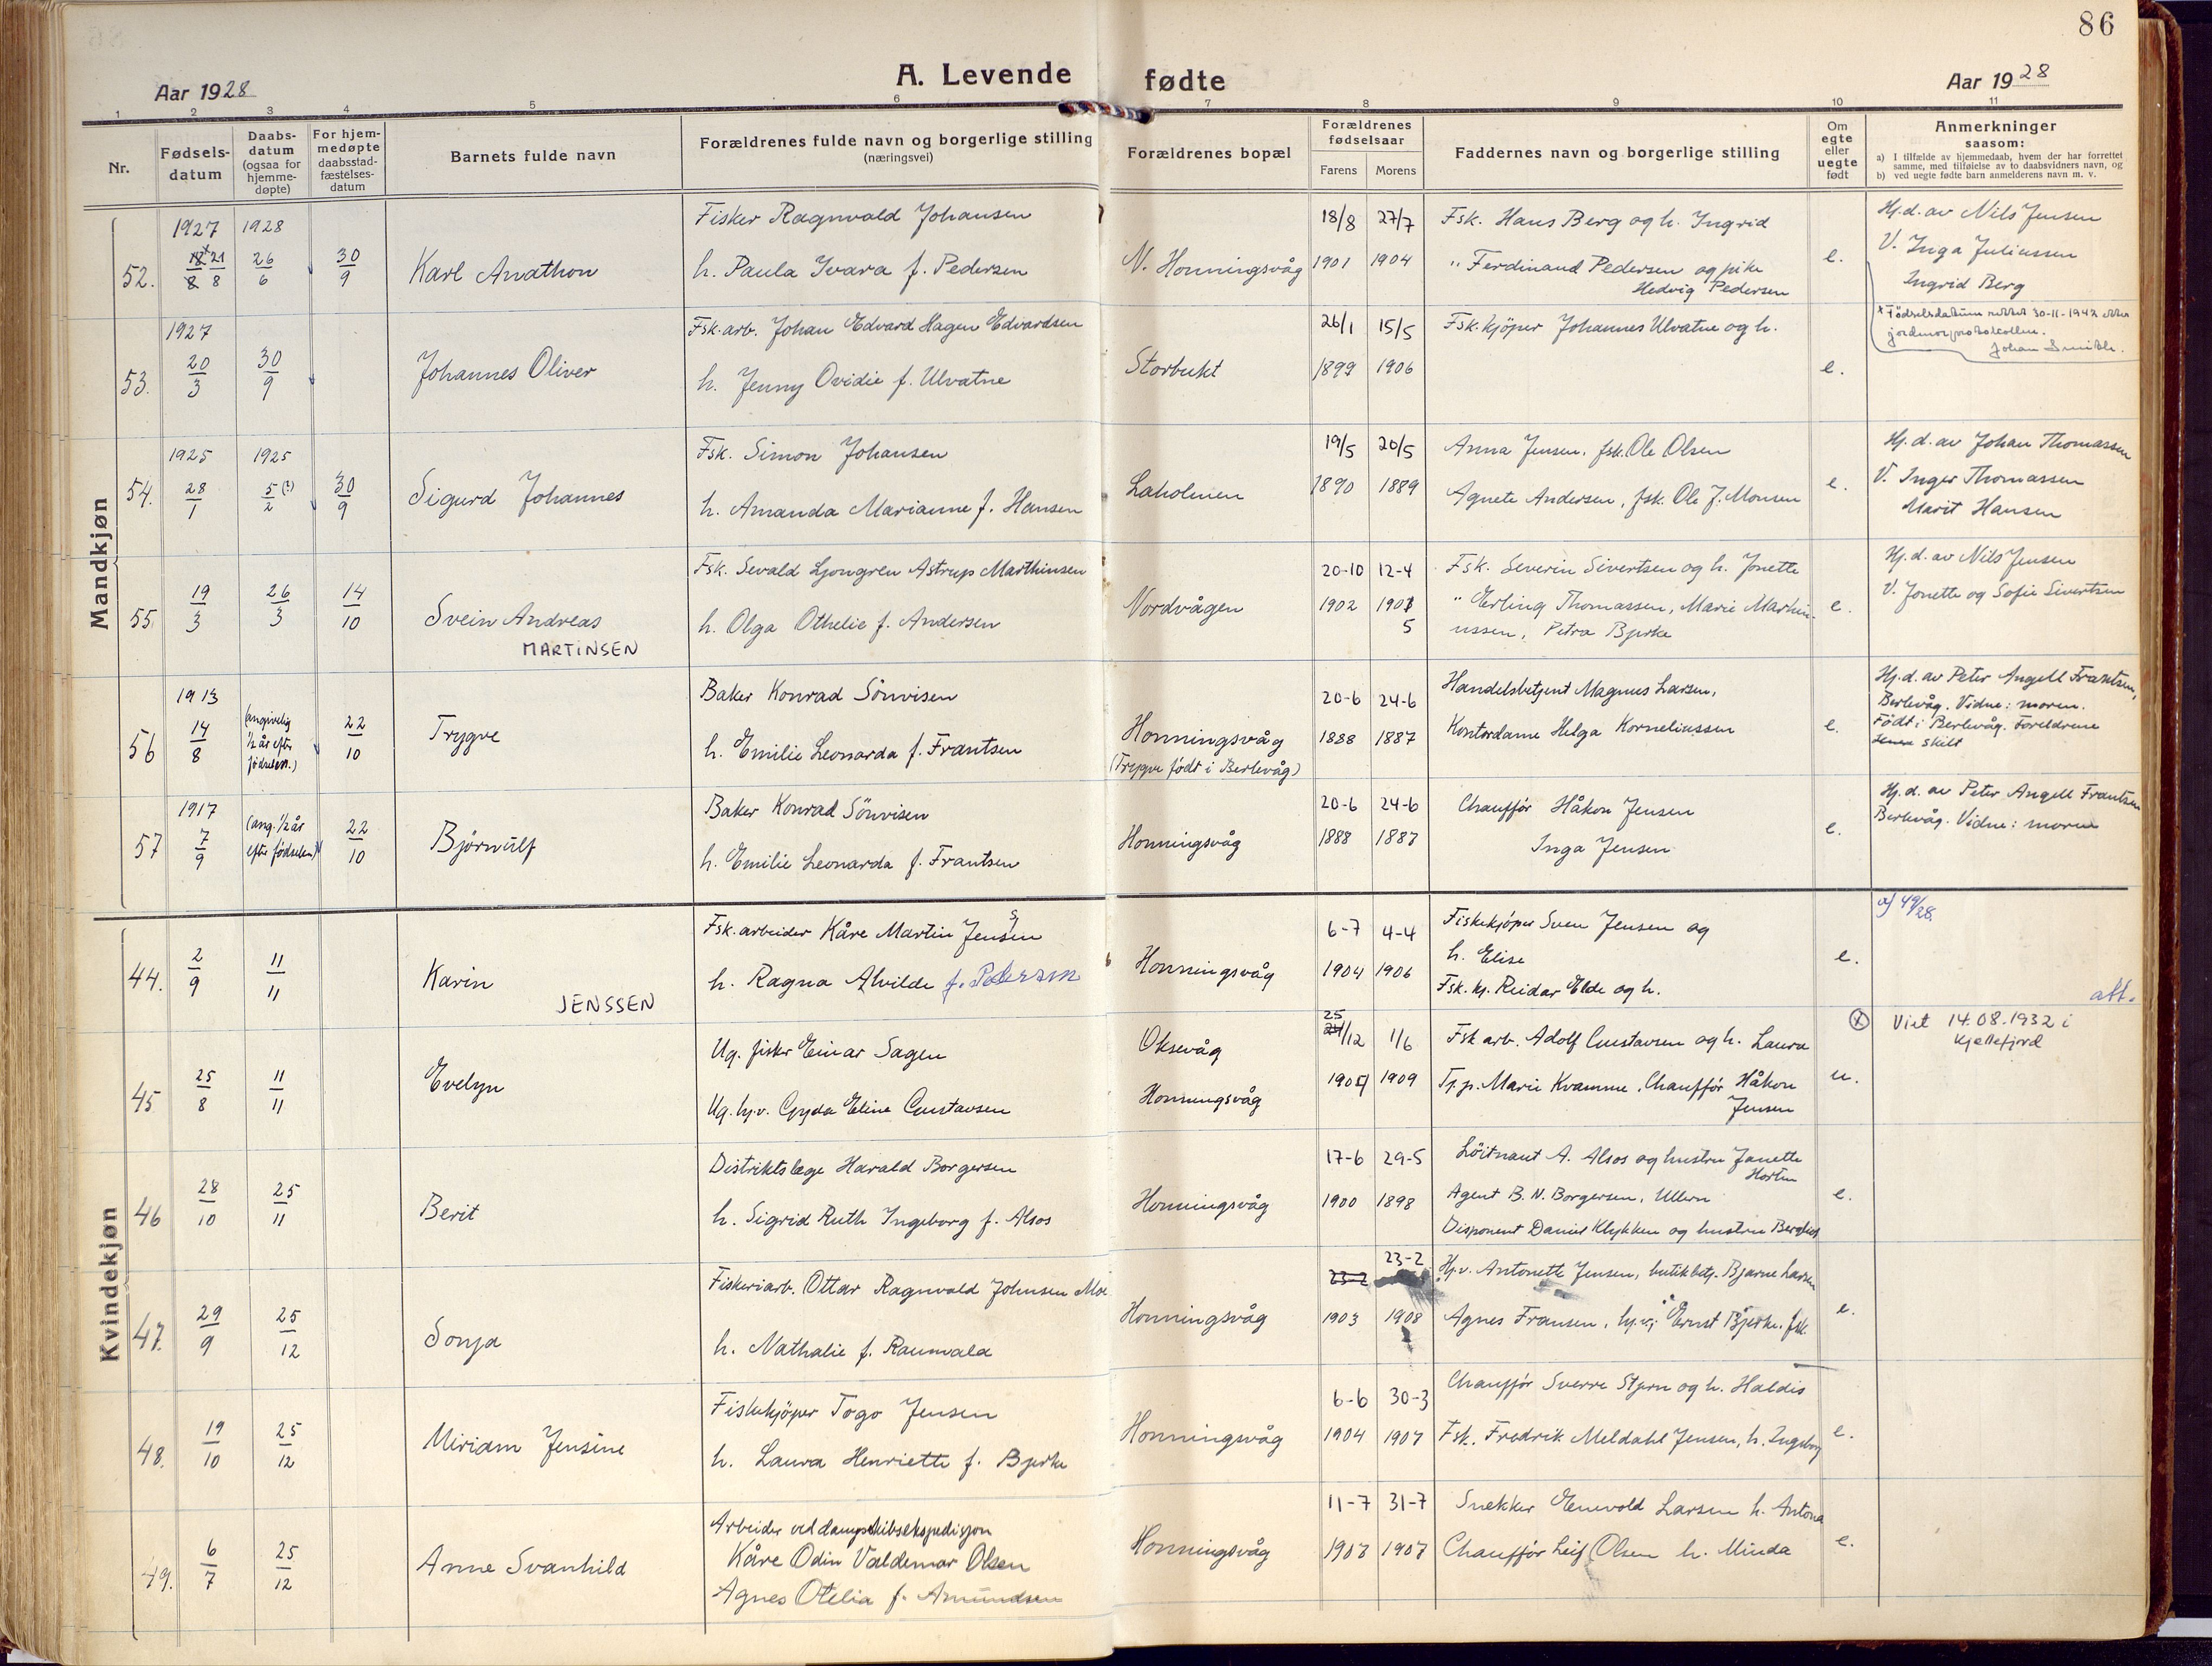 86
A. Levende fødte
Aar 1928
Aar 1928
1 2 3 4 5 6 7 8 9 10 11
Nr.
Fødsels-
datum
Daabs-
datum
(ogsaa for
hjemme-
døpte)
For hjem-
medøpte
daabsstad-
fæstelses-
datum
Barnets fulde navn
Forældrenes fulde navn og borgerlige stilling
(næringsvei)
Forældrenes bopæl
Forældrenes
fødselsaar
Farens Morens
Faddernes navn og borgerlige stilling
Om
egte
eller
uegte
født
Anmerkninger
saasom:
a) I tilfælde av hjemmedaab, hvem der har forrettet
samme, med tilføielse av to daabsvidners navn, og
b) ved uegte fødte barn anmelderens navn m. v.
Mandkjøn
52.
1927
18/8 x 21/8
1928
26/6
30/9
Karl Anathon
Fisker Ragnvald Johansen
h. Paula Ivara f. Pedersen
N. Honningsvåg
18/8 27/7
1901 1904
Fsk. Hans Berg og h. Ingrid
" Ferdinand Pedersen og pike
Hedvig Pedersen
e.
Hj.d. av Nils Jensen
V. Inga Juliussen
Ingrid Berg
x Fødselsdatum rettet 30-11-1942 etter
jordmorprotokollen.
Johan Smith.
53.
1927
20/3
30/9
Johannes Oliver
Fsk.arb. Johan Edvard Hagen Edvardsen
h. Jenny Ovidie f. Ulvatne
Storbukt
26/1 15/5
1899 1906
Fsk.kjöper Johannes Ulvatne og h.
e.
54.
1925
28/1
1925
5/2 (?)
30/9
Sigurd Johannes
Fsk. Simon Johansen
h. Amanda Marianne f. Hansen
Laholmen
19/5 20/5
1890 1889
Anna Jensen, fsk. Ole Olsen
Agnete Andersen, fsk. Ole J. Monsen
e.
Hj.d. av Johan Thomassen
V. Inger Thomassen
Marit Hansen
55.
19/3
26/3
14/10
Svein Andreas
MARTINSEN
Fsk. Sevald Ljongren Astrup Marthinsen
h. Olga Othelie f. Andersen
Nordvågen
20-10 12-4
1902 1901
5
Fsk. Severin Sivertsen og h. Jonette
" Erling Thomassen, Marie Martin-
ussen, Petra Bjerke
e.
Hj.d. av Nils Jensen
V. Jonette og Sofie Sivertsen
56
1913
14/8
(angivelig
1/2 år efter
fødselen.)
22/10
Trygve
Baker Konrad Sönvisen
h. Emilie Leonarda f. Frantsen
Honningsvåg
(Trygve født i Berlevåg)
20-6 24-6
1888 1887
Handelsbetjent Magnus Larsen,
Kontordame Helga Korneliussen
e.
Hj.d. av Peter Angell Frantsen,
Berlevåg. Vidne: moren.
Født i Berlevåg. Foreldrene
skilt
57
1917
7/9
(ang. 1/2 år
efter fødselen)
22/10
Bjørnulf
Baker Konrad Sönvisen
h. Emilie Leonarda f. Frantsen
Honningsvåg
20-6 24-6
1888 1887
Chauffør Håkon Jensen
Inga Jensen
e.
Hj.d. av Peter Angell Frantsen
Berlevåg. Vidne: moren
Kvindekjøn
44.
2/9
11/11
Karin
JENSSEN
Fsk.arbeider Kåre Martin Jensen
s
h. Ragna Alvilde f. Pedersen
Honningsvåg
6-7 4-4
1904 1906
Fiskekjöper Sven Jensen og
h. Elise
Fsk.kj. Reidar Elde og h.
e.
a) 49/28.
att.
45
25/8
11/11
Evelyn
Ug. fisker Einar Sagen
Ug. hj.v. Gyda Eline Gustavsen
Oksevåg
Honningsvåg
25
24/12 1/6
1904 1909
Fsk arb. Adolf Gustavsen og h. Laura
Tj.p. Marie Kvamme, Chauffør Håkon
Jensen
u.
(x) Viet 14.08.1932 i
Kjøllefjord
46
28/10
25/11
Berit
Distriktslæge Harald Borgersen
h. Sigrid Ruth Ingeborg f. Alsos
Honningsvåg
17-6 29-5
1900 1898
Löitnant A. Alsos og hustru Janette
Horten
Agent B. N. Borgersen, Ullern
Disponent Daniel Klykken og hustru
e.
47.
29/9
25/12
Sonja
Fiskeriarb. Ottar Ragnvald Johnsen Moe
h. Nathalie f. Raumvald
Honningsvåg
23-2 23-2
1903 1908
Hj.v. Antonette Jensen, butikbetj. Bjarne Larsen
Agnes Fransen, hj.v., Ernst Bjerke, fsk.
e.
48.
19/10
25/12
Miriam Jensine
Fiskekjöper Togo Jensen
h. Laura Henriette f. Bjerke
Honningsvåg
6-6 30-3
1904 1907
Chauffør Sverre Stjern og h. Haldis
Fsk. Fredrik Meldahl Jensen, h. Ingeborg
e.
49.
6/7
25/12
Anne Svanhild
Arbeider ved dampskibsekspedisjon
Kåre Odin Valdemar Olsen
Agnes Otelia f. Amundsen
Honningsvåg
11-7 31-7
1907 1907
Snekker Enevold Larsen h. Antona
Chauffør Leif Olsen h. Minda
e.